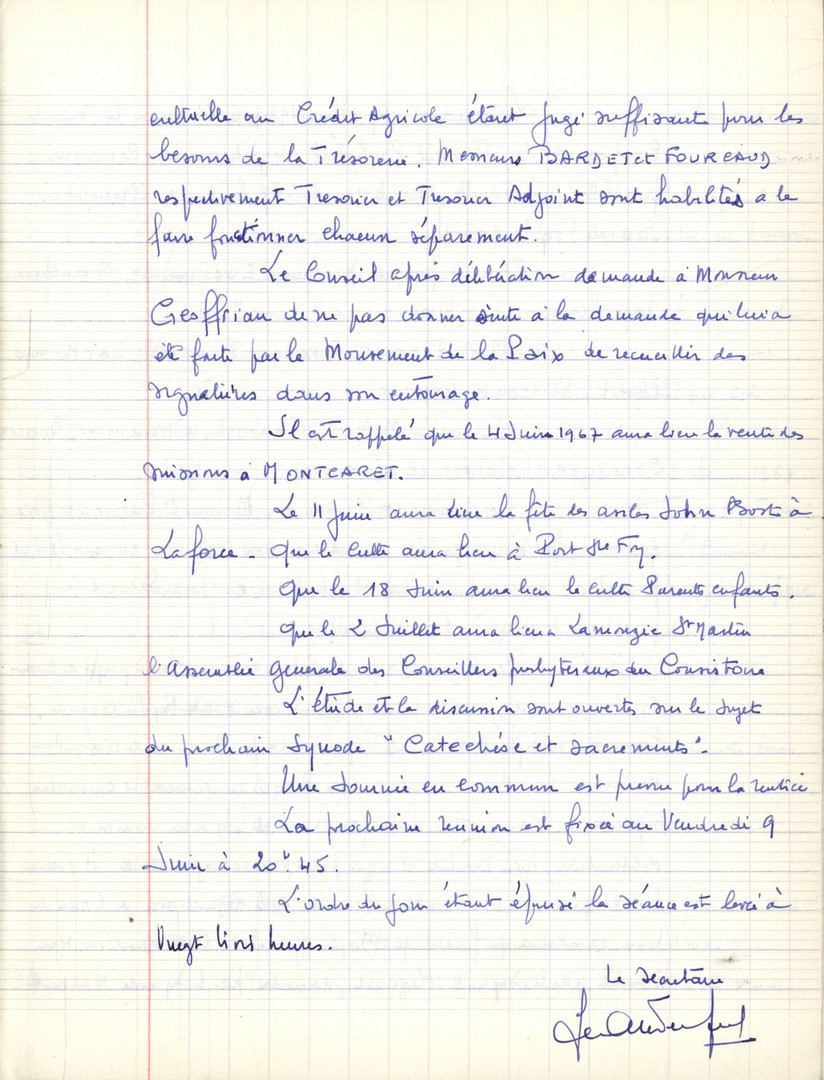 cultuelle au Crédit Agricole étant jugé suffisante pour les
besoins de la Trésorerie. Messieurs BARDET et FOUREAUD
respectivement Tresorier et Tresorier Adjoint sont habilités a le
faire fonctionner chacun séparement.
Le Conseil après délibération demande à Monsieur
Geoffrian de ne pas donner suite à la demande qui lui a
été faite par le Mouvement de la Paix de recueillir des
signatures dans son entourage.
Il est rappelé que le 4 Juin 1967 aura lieu la vente des
missions à MONTCARET.
Le 11 Juin aura lieu la fête des asiles John Bost à
Laforce - que le culte aura lieu à Port Ste Foy.
que le 18 Juin aura lieu le culte Parents enfants.
que le 2 Juillet aura lieu a Lamonzie St Martin
l'Assemblée generale des Conseillers presbyteraux du Consistoire
L'étude et la discussion sont ouvertes sur le sujet
du prochain Synode " Catechèse et sacrements".
Une Journée en commun est prevue pour la rentrée
La prochaine reunion est fixée au Vendredi 9
Juin à 20h. 45.
L'ordre du jour étant épuisé la séance est levée à
Vingt trois heures.
Le Secretaire